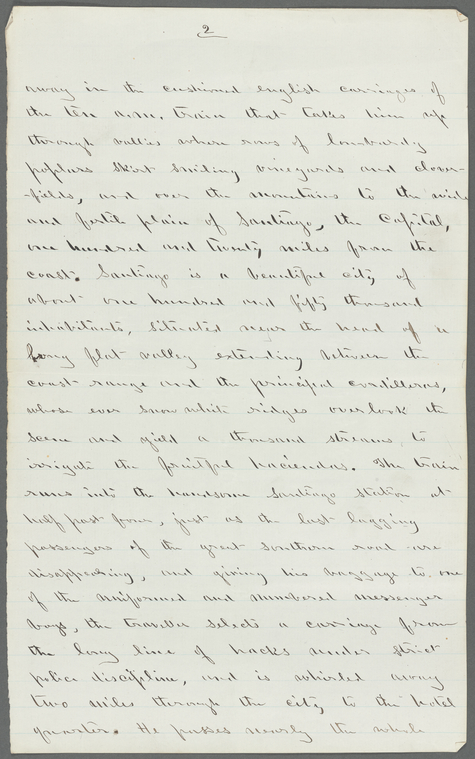 2
away in the cushioned english carriages of
the ten a.m. train that takes him up
through vallies where rows of lombardy
poplars skirt smiling vineyards and clover-
-fields, and over the mountains to the wide
and fertile plain of Santiago, the Capital,
one hundred and twenty miles from the
coast. Santiago is a beautiful city of
about one hundred and fifty thousand
inhabitants, situated near the head of a
long flat valley extending between the
coast range and the principal cordilleras,
whose ever snow white ridges overlook the
scene and yield a thousand streams to
irrigate the fruitful haciendas. The train
runs into the handsome Santiago station at
half past four, just as the last lagging
passengers of the great southern road are
disappearing, and giving his baggage to one
of the uniformed and numbered messenger
boys, the traveller selects a carriage from
the long line of hacks under strict
police discipline, and is whirled away
two miles through the city to the hotel
quarter. He passes nearly the whole